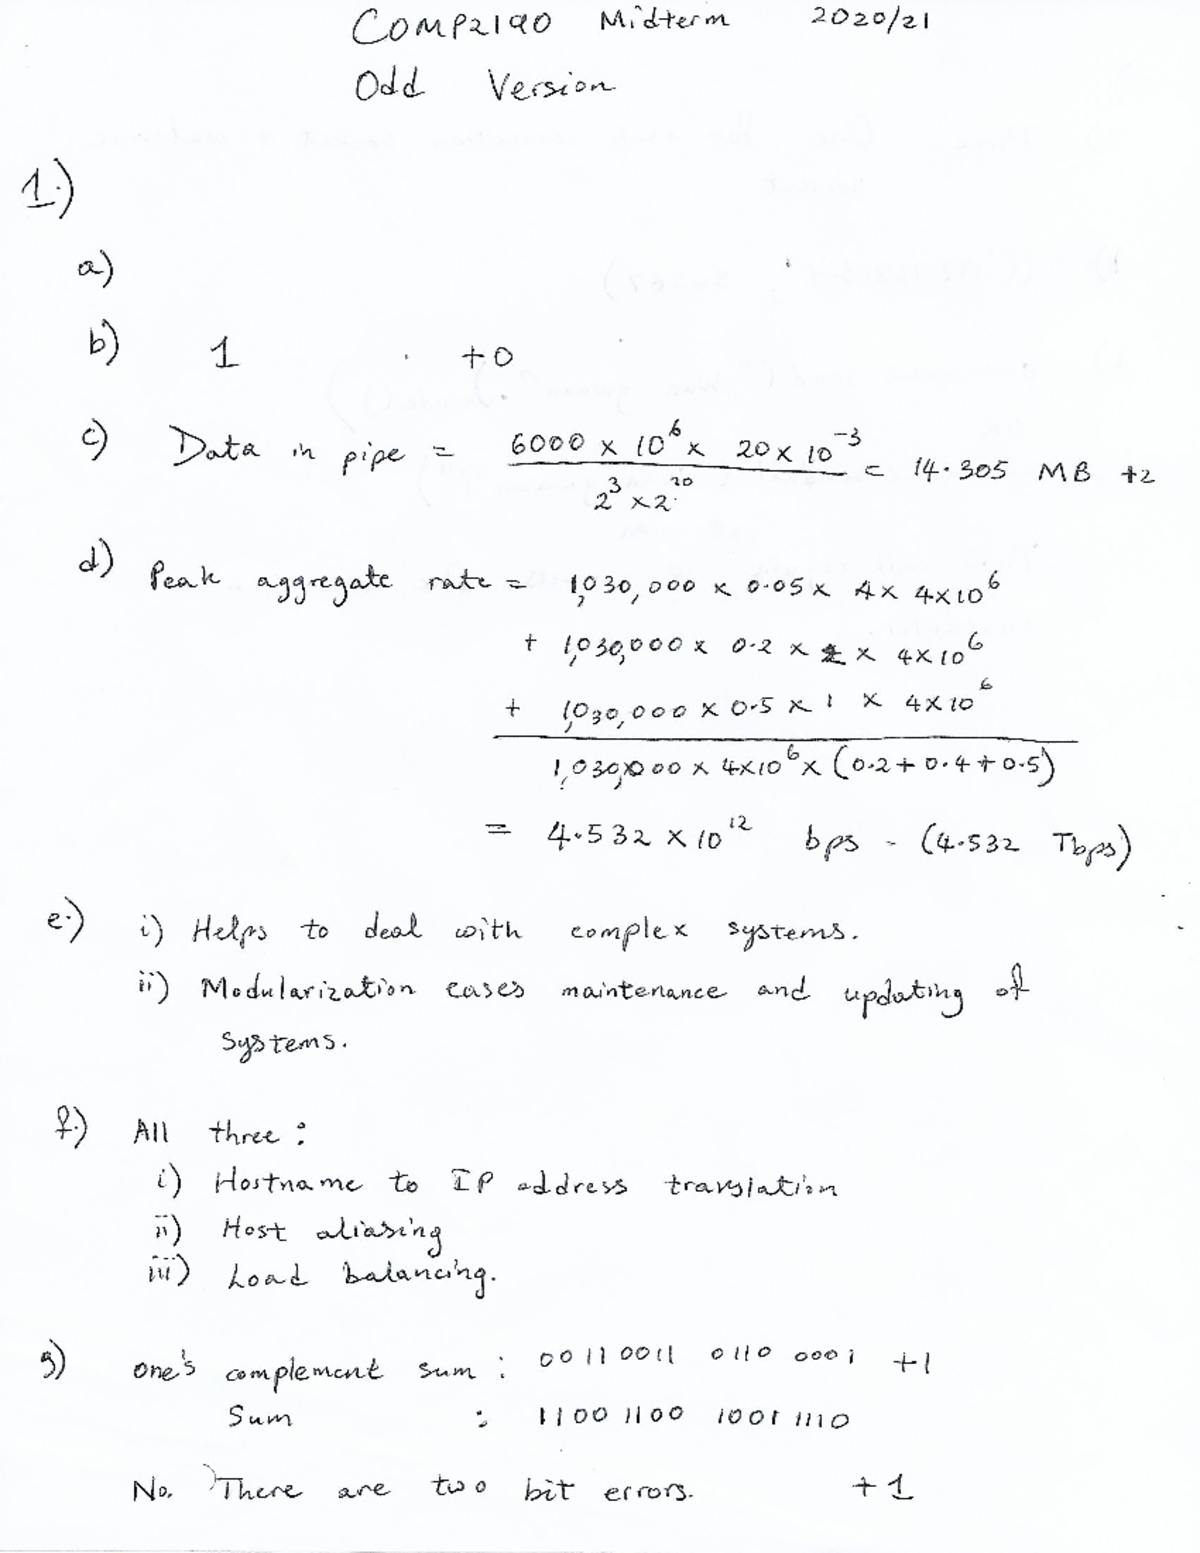 COMP2190 Midterm 2020/21
Odd Version
1.)
a)
b) 1 +0
c) Data in pipe = 6000 x 10^6 x 20 x 10^-3 / 2^3 x 2^20 = 14.305 MB +2
d) Peak aggregate rate = 1,030,000 x 0.05 x 4 x 4x10^6
+ 1,030,000 x 0.2 x 2 x 4x10^6
+ 1,030,000 x 0.5 x 1 x 4x10^6
1,030,000 x 4x10^6 x (0.2 + 0.4 + 0.5)
= 4.532 x 10^12 bps - (4.532 Tbps)
e.) i) Helps to deal with complex systems.
ii) Modularization eases maintenance and updating of
systems.
f.) All three :
i) Hostname to IP address translation
ii) Host aliasing
iii) Load balancing.
g) one's complement sum : 00110011 0110 0001 +1
Sum : 11001100 1001 1110
No. There are two bit errors. +1